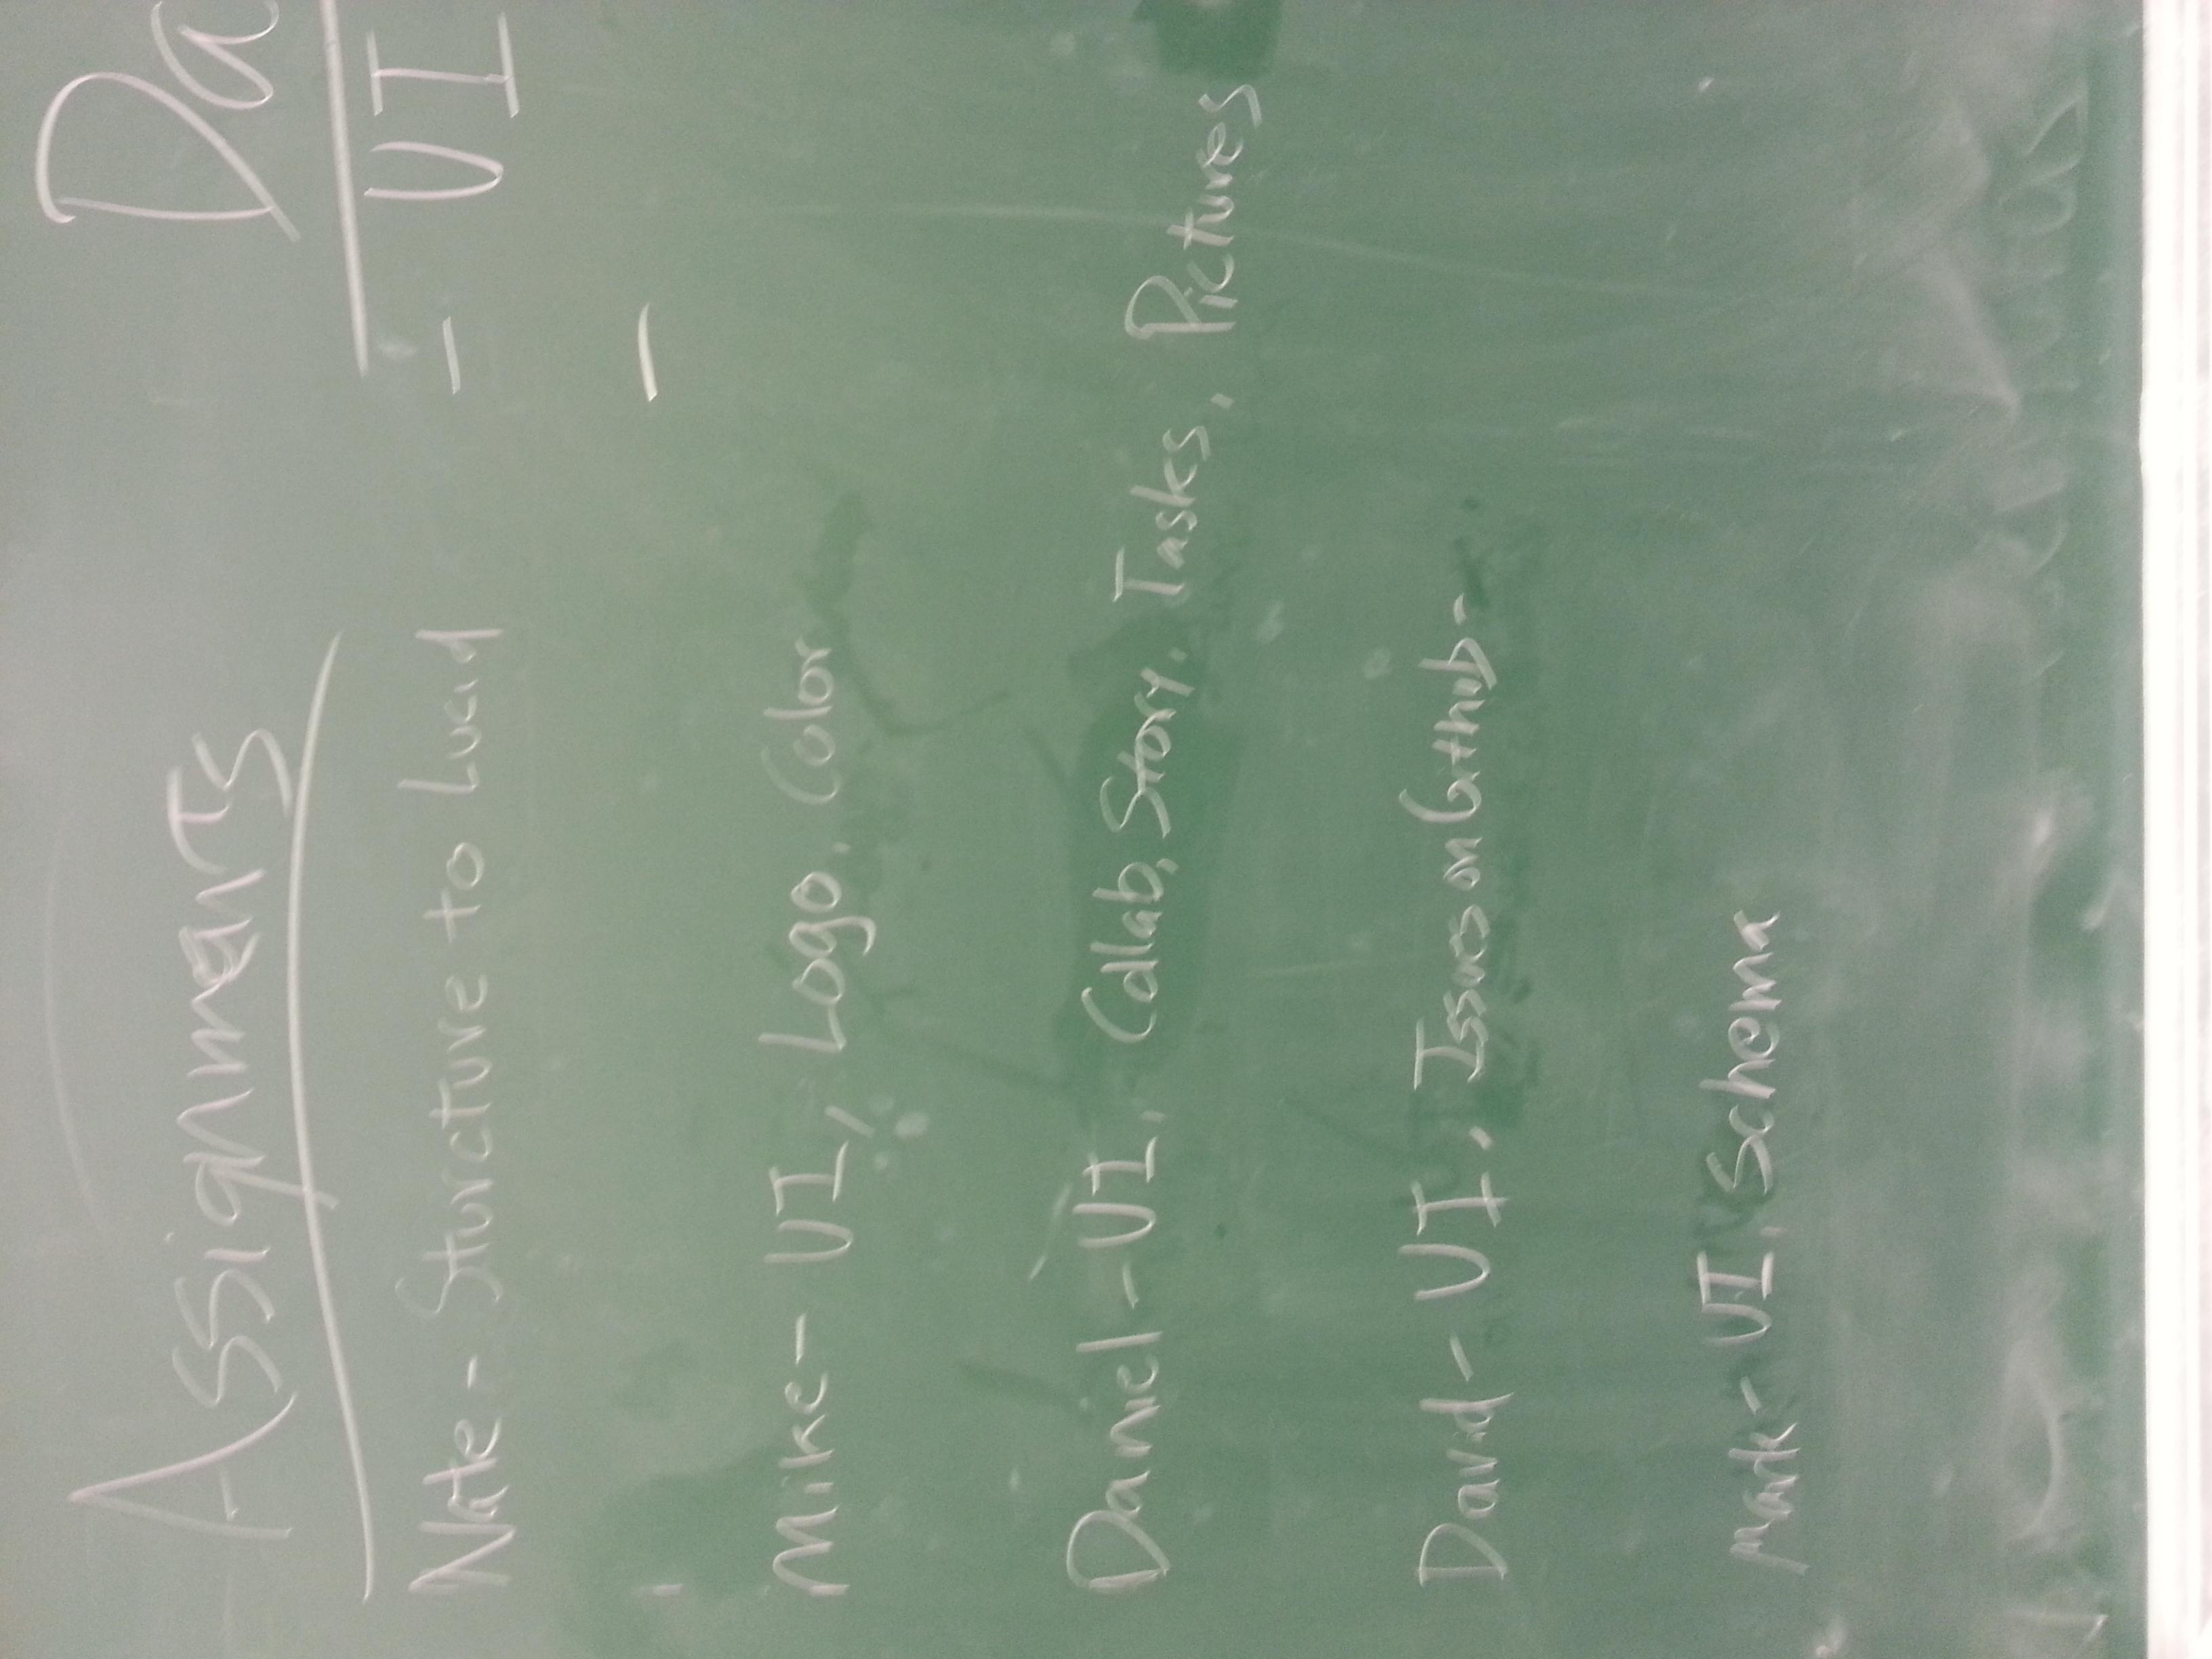 Assignments
Nate - Sturcture to Lucid
Mike - UI, Logo, Color
Daniel - UI, Collab, Story, Tasks, Pictures
David - UI, Issues on Github -
Mark - UI, Schema
Da
- UI
-